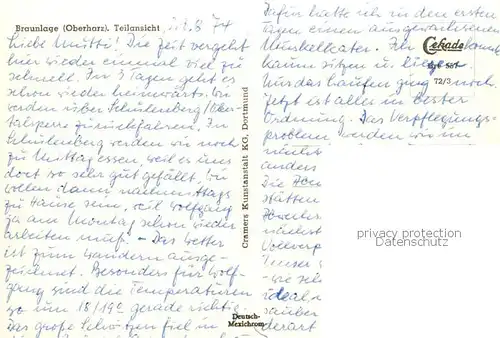 Braunlage (Oberharz). Teilansicht
Liebe Mutti! Die Zeit vergeht
hier wieder einmal viel zu
schnell. In 3 Tagen geht es
schon wieder heimwärts. Wir
werden über Schulenberg/Oker-
talsperre zurückfahren. In
Schulenberg werden wir noch
zu Mittag essen, weil es uns
dort so sehr gut gefällt. Wir
wollen dann nachmittags
zu Hause sein, weil Wolfgang
ja am Montag schon wieder
arbeiten muß. - Das Wetter
ist zum Wandern ausge-
zeichnet. Besonders für Wolf-
gang sind die Temperaturen
so um 18/19° gerade richtig.
Das große Schwitzen fiel in
Cramers Kunstanstalt KG. Dortmund
Deutsch-
Mexichrom
Dafür hatte ich in den ersten
Tagen einen
Muskelkater. Ich
kaum sitzen u.
nur das Laufen ging noch.
Jetzt ist alles in bester
Ordnung. Das Verpflegungs-
problem werden wir im
anders
Die
stätten
nächst
Vollverp
Unser
- wie
ideal
sauber
derart
Cekade
72/3
privacy protection
Datenschutz